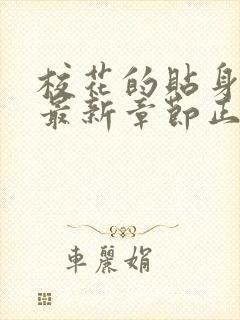 校花的貼身
最新章節正
車麗娟